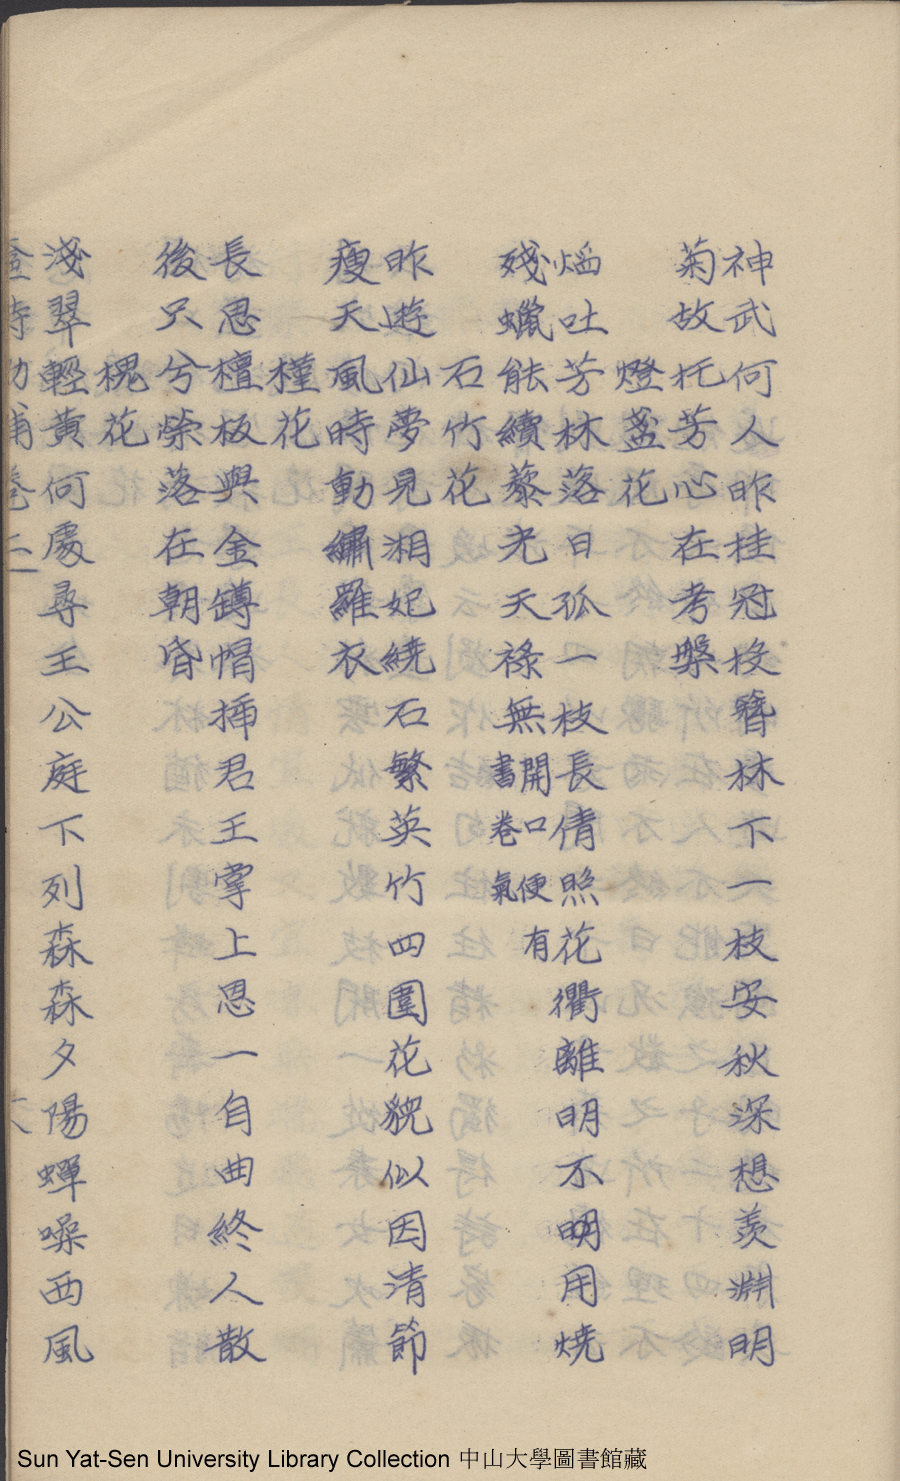 神武何人昨挂冠投簪林下一枝安秋深想羡淵明
菊故托芳心在考槃
燈盞花
熖吐芳林落日孤一枝長倩照花衢離明不明用燒
殘蠟能續藜光天祿無開口便有書卷氣
石竹花
昨遊仙夢見湘妃繞石繁英竹四圍花貌似因清節
瘦天風時動繡羅衣
槿花
長恩檀板與金罇帽揷君王寧上恩一自曲終人散
後只兮榮落在朝昏
槐花
淺翠輕黄何處尋王公庭下列森森夕陽蟬噪西風
Sun Yat-Sen University Library Collection 中山大學圖書館藏